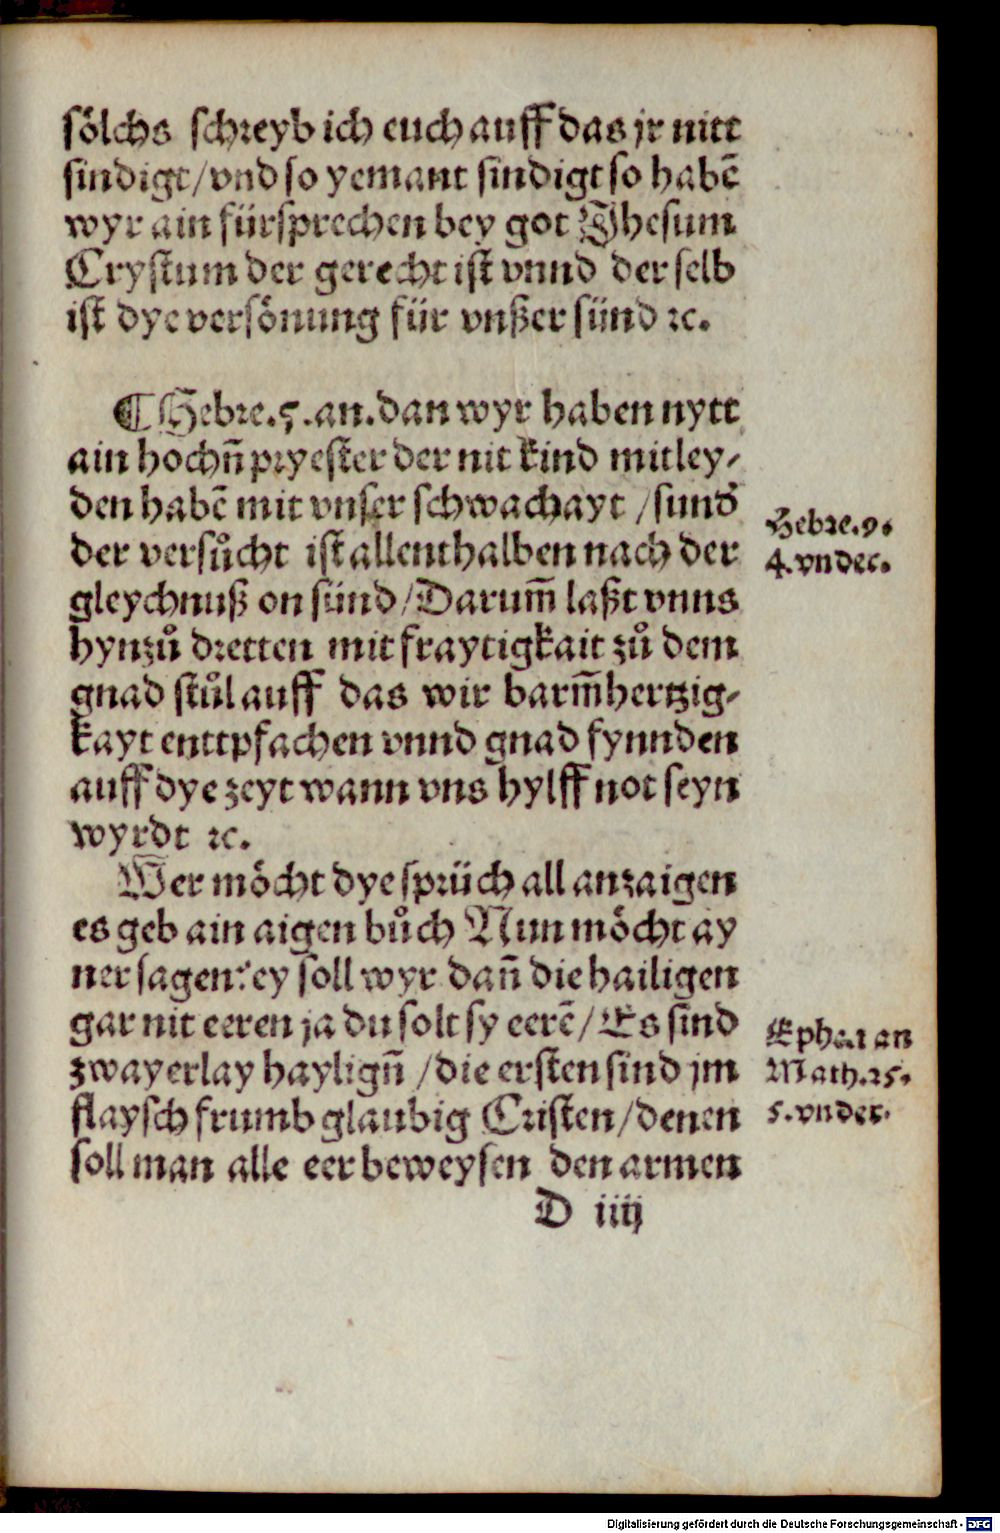 sölchs schreyb ich euch auff das jr nitt
sindigt / vnd so yemant sindigt so habē
wyr ain fürsprechen bey got Jhesum
Crystum der gerecht ist vnnd der selb
ist dye versönung für vnßer sünd ꝛc.
¶ Hebre. 5. an. dan wyr haben nytt
ain hochn̄ pryester der nit kind mitley⸗
den habē mit vnser schwachayt / sund
der versůcht ist allenthalben nach der
gleychnuß on sünd / Darum̄ laßt vnns
hynzů dretten mit fraytigkait zů dem
gnad stůl auff das wir barm̄hertzig⸗
kayt enttpfachen vnnd gnad fynnden
auff dye zeyt wann vns hylff not seyn
wyrdt ꝛc.
Wer möcht dye sprüch all anzaigen
es geb ain aigen bůch Nun möcht ay
ner sagen: ey soll wyr dan̄ die hailigen
gar nit eeren ja du solt sy eerē / Es sind
zwayerlay haylign̄ / die ersten sind jm
flaysch frumb glaubig Cristen / denen
soll man alle eer beweysen den armen
D iiij
Hebre. 9.
4. vn der.
Ephe. 1 an
Math. 25.
5. vn der.
Digitalisierung gefördert durch die Deutsche Forschungsgemeinschaft - DFG